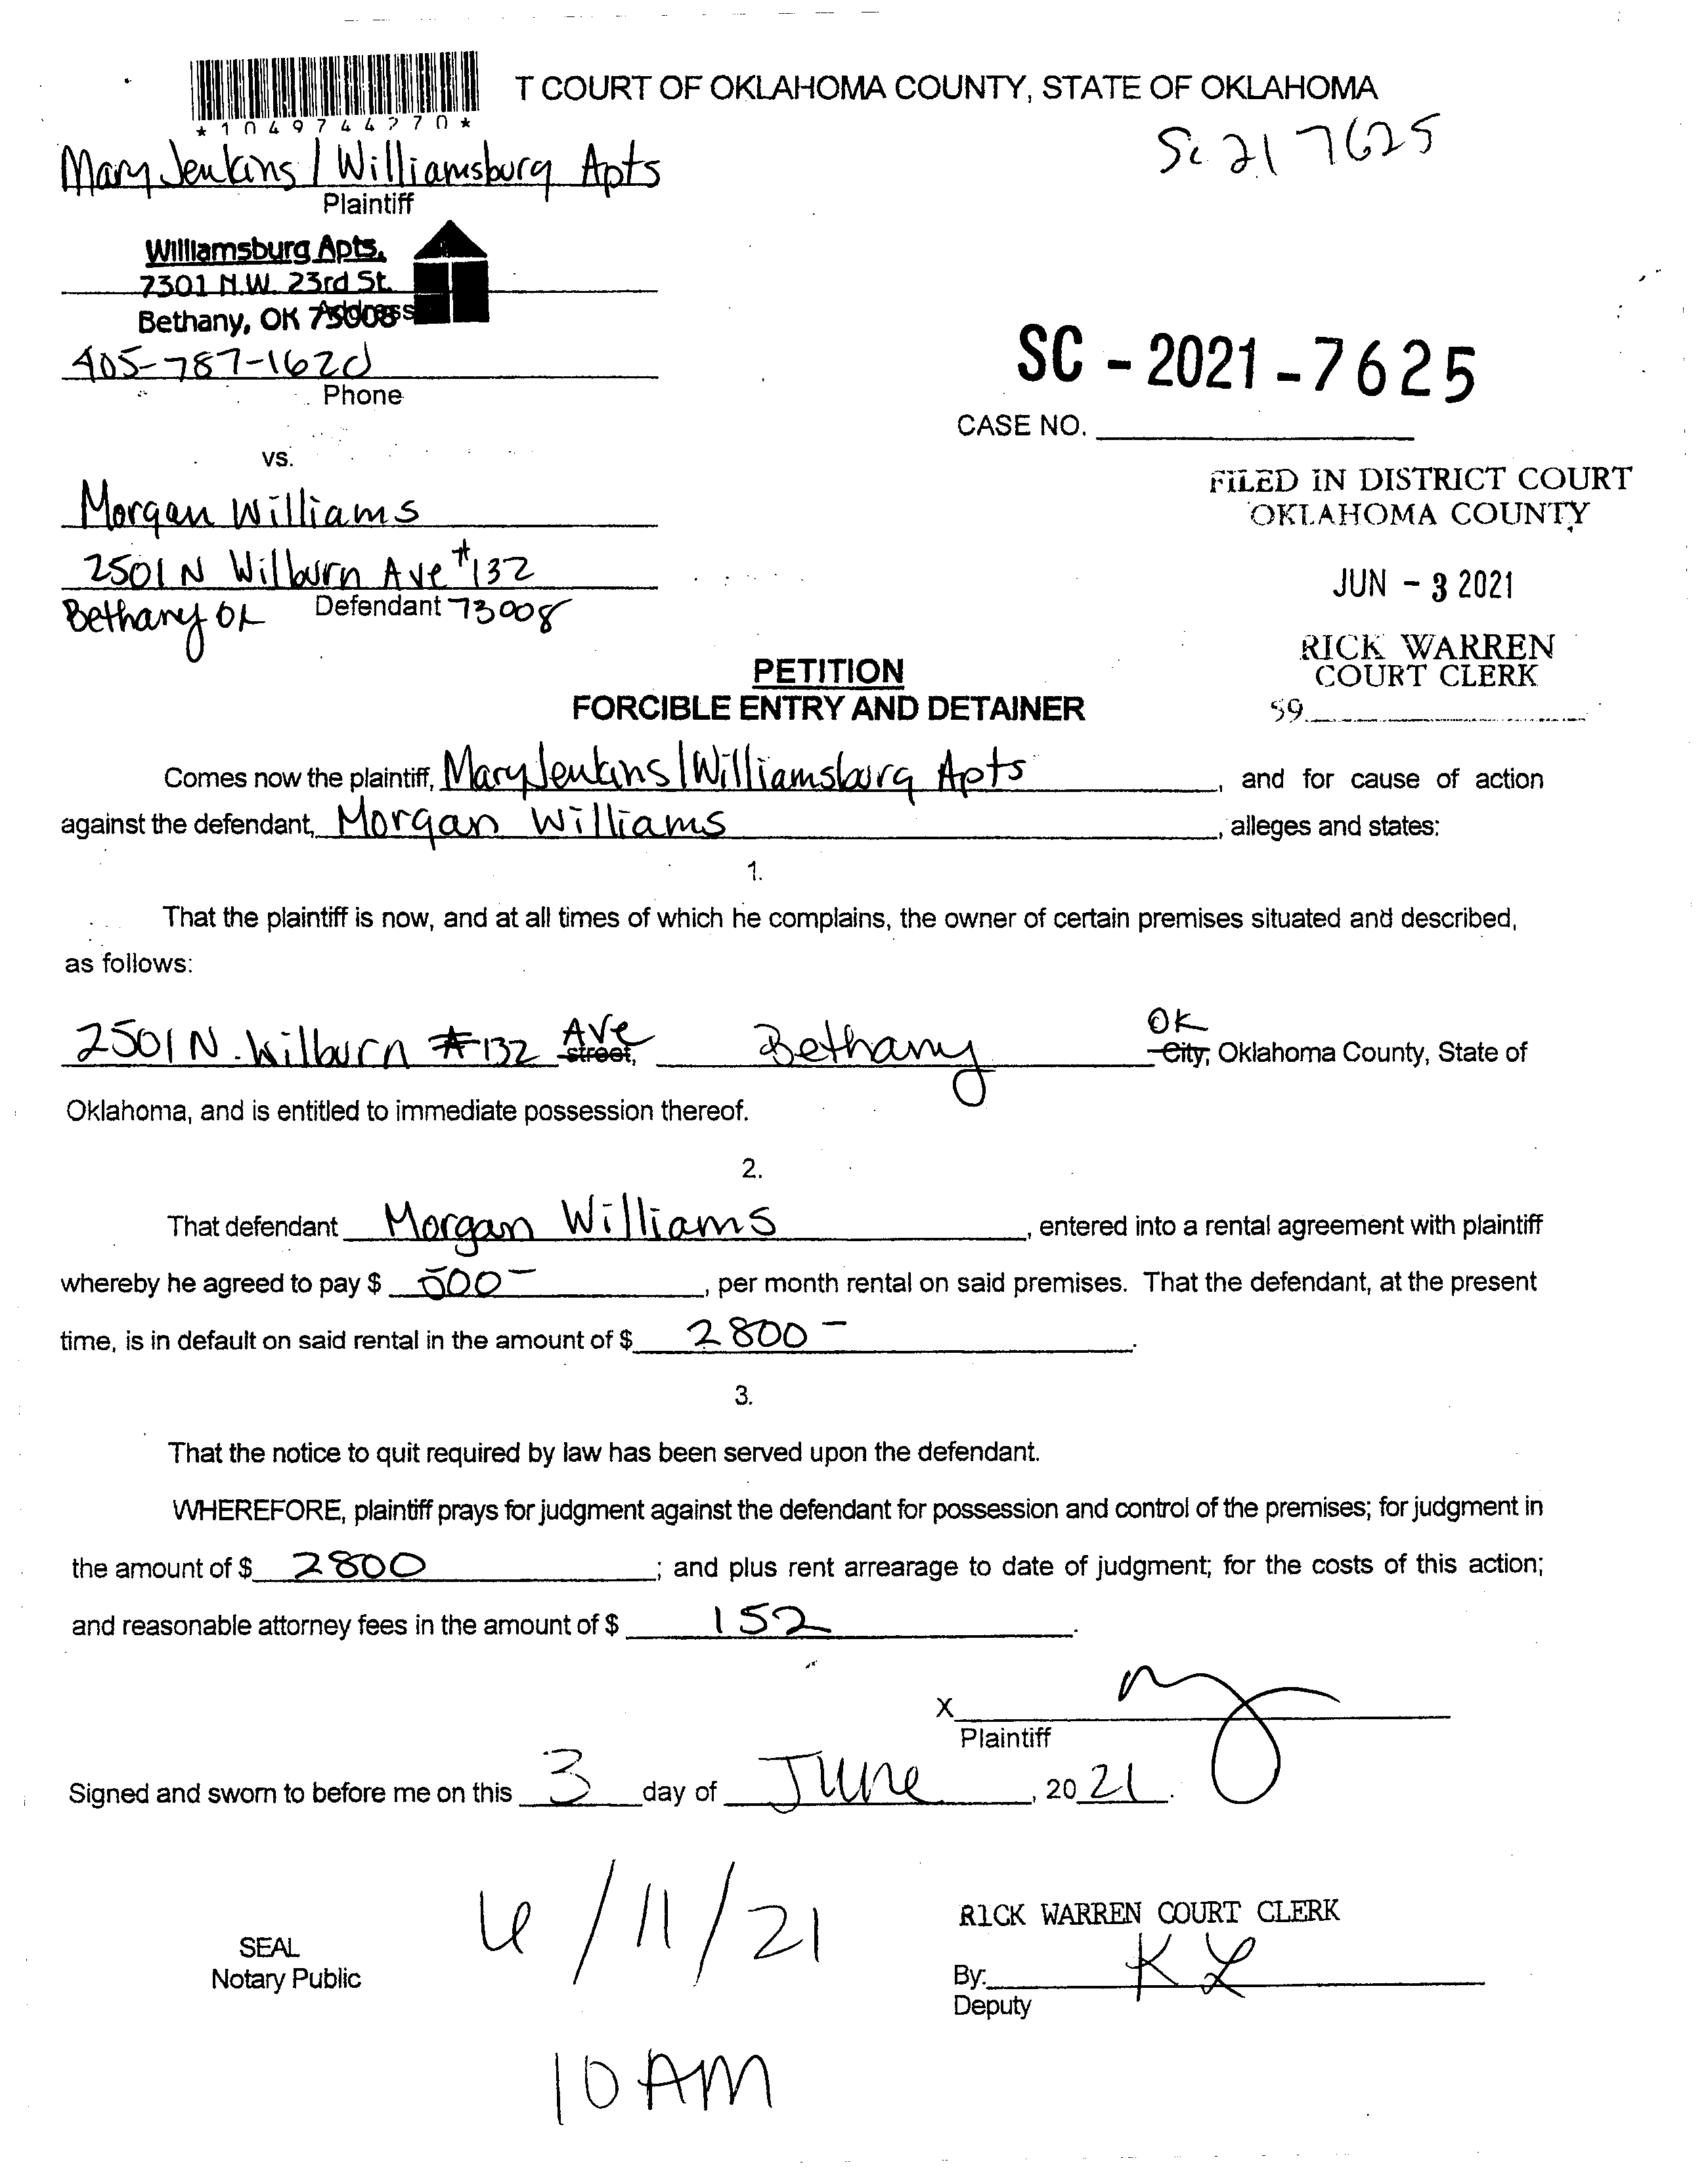 T COURT OF OKLAHOMA COUNTY, STATE OF OKLAHOMA
*1049744270*
Sc 21 7625
Mary Jenkins / Williamsburg Apts
Plaintiff
Williamsburg Apts.
7301 N.W. 23rd St.
Bethany, OK 73008
Address
405-787-1620
Phone
SC - 2021 - 7625
CASE NO.
vs.
FILED IN DISTRICT COURT
OKLAHOMA COUNTY
Morgan Williams
2501 N Wilburn Ave #132
JUN - 3 2021
Bethany OK Defendant 73008
RICK WARREN
COURT CLERK
59
PETITION
FORCIBLE ENTRY AND DETAINER
Comes now the plaintiff, Mary Jenkins / Williamsburg Apts, and for cause of action
against the defendant, Morgan Williams, alleges and states:
1.
That the plaintiff is now, and at all times of which he complains, the owner of certain premises situated and described,
as follows:
2501 N. Wilburn #132 Ave street, Bethany OK City, Oklahoma County, State of
Oklahoma, and is entitled to immediate possession thereof.
2.
That defendant Morgan Williams, entered into a rental agreement with plaintiff
whereby he agreed to pay $ 500-, per month rental on said premises. That the defendant, at the present
time, is in default on said rental in the amount of $ 2800-.
3.
That the notice to quit required by law has been served upon the defendant.
WHEREFORE, plaintiff prays for judgment against the defendant for possession and control of the premises; for judgment in
the amount of $ 2800; and plus rent arrearage to date of judgment; for the costs of this action;
and reasonable attorney fees in the amount of $ 152.
X
Plaintiff
Signed and sworn to before me on this 3 day of June, 2021.
6/11/21
RICK WARREN COURT CLERK
SEAL
Notary Public
By: KL
Deputy
10 AM